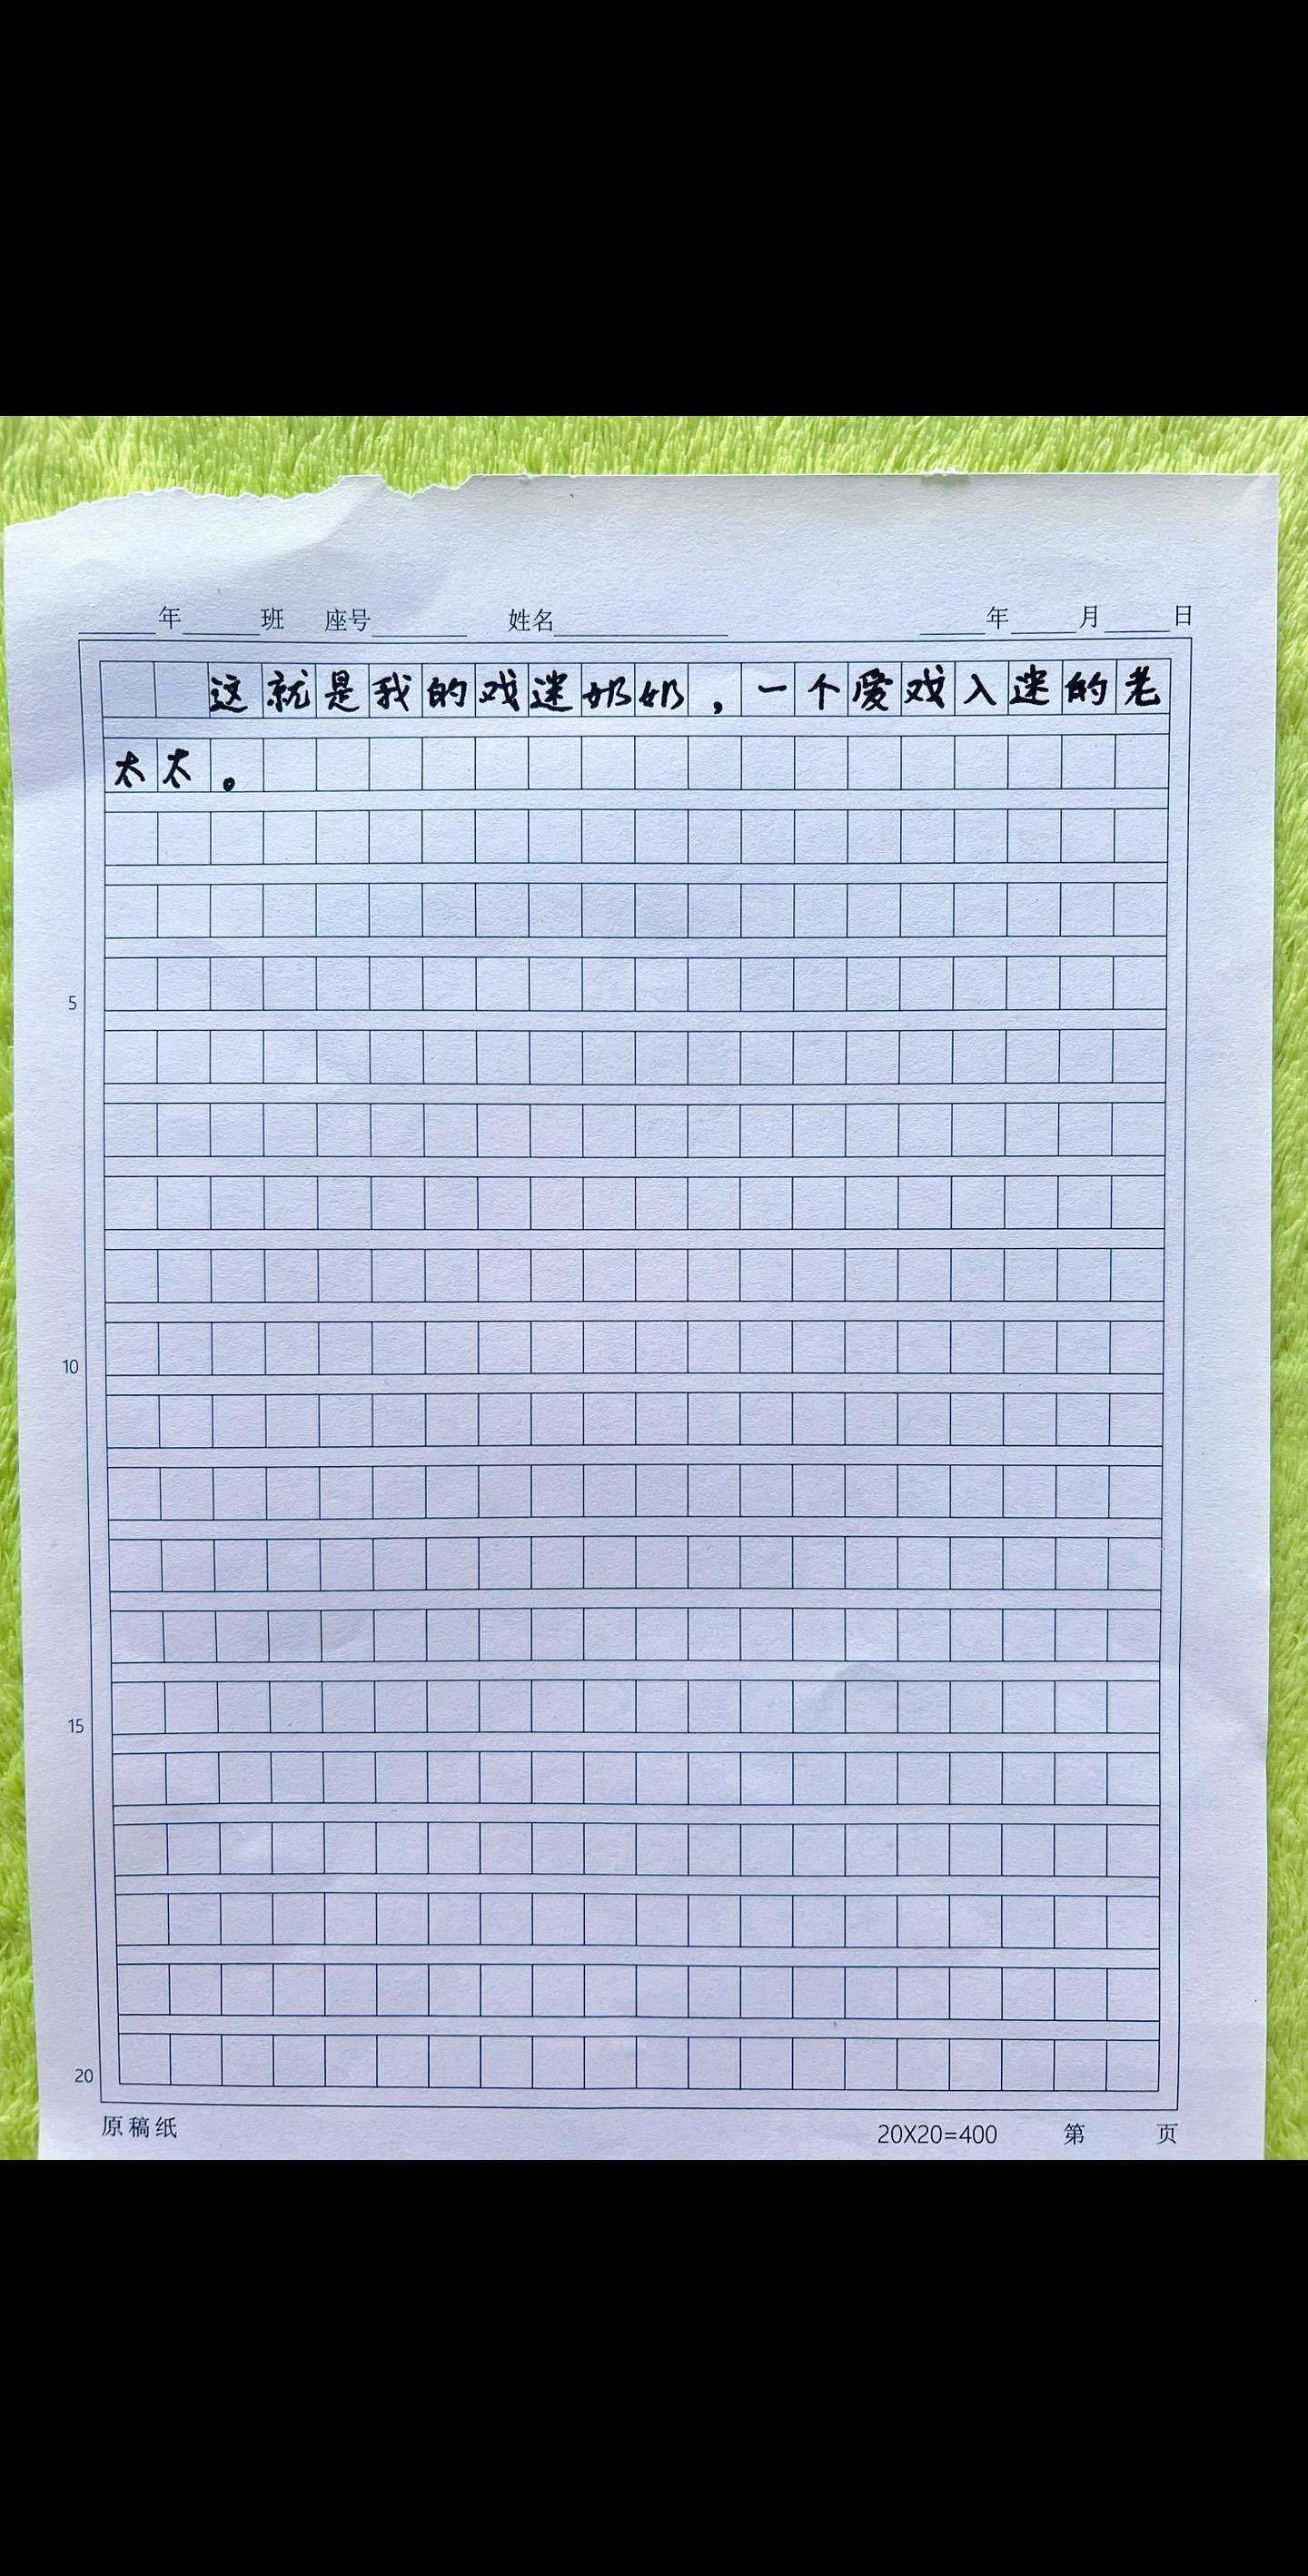 年 班 座号 姓名 年 月 日
这就是我的戏迷奶奶，一个爱戏入迷的老
太太。
5
10
15
20
原稿纸 20X20=400 第 页